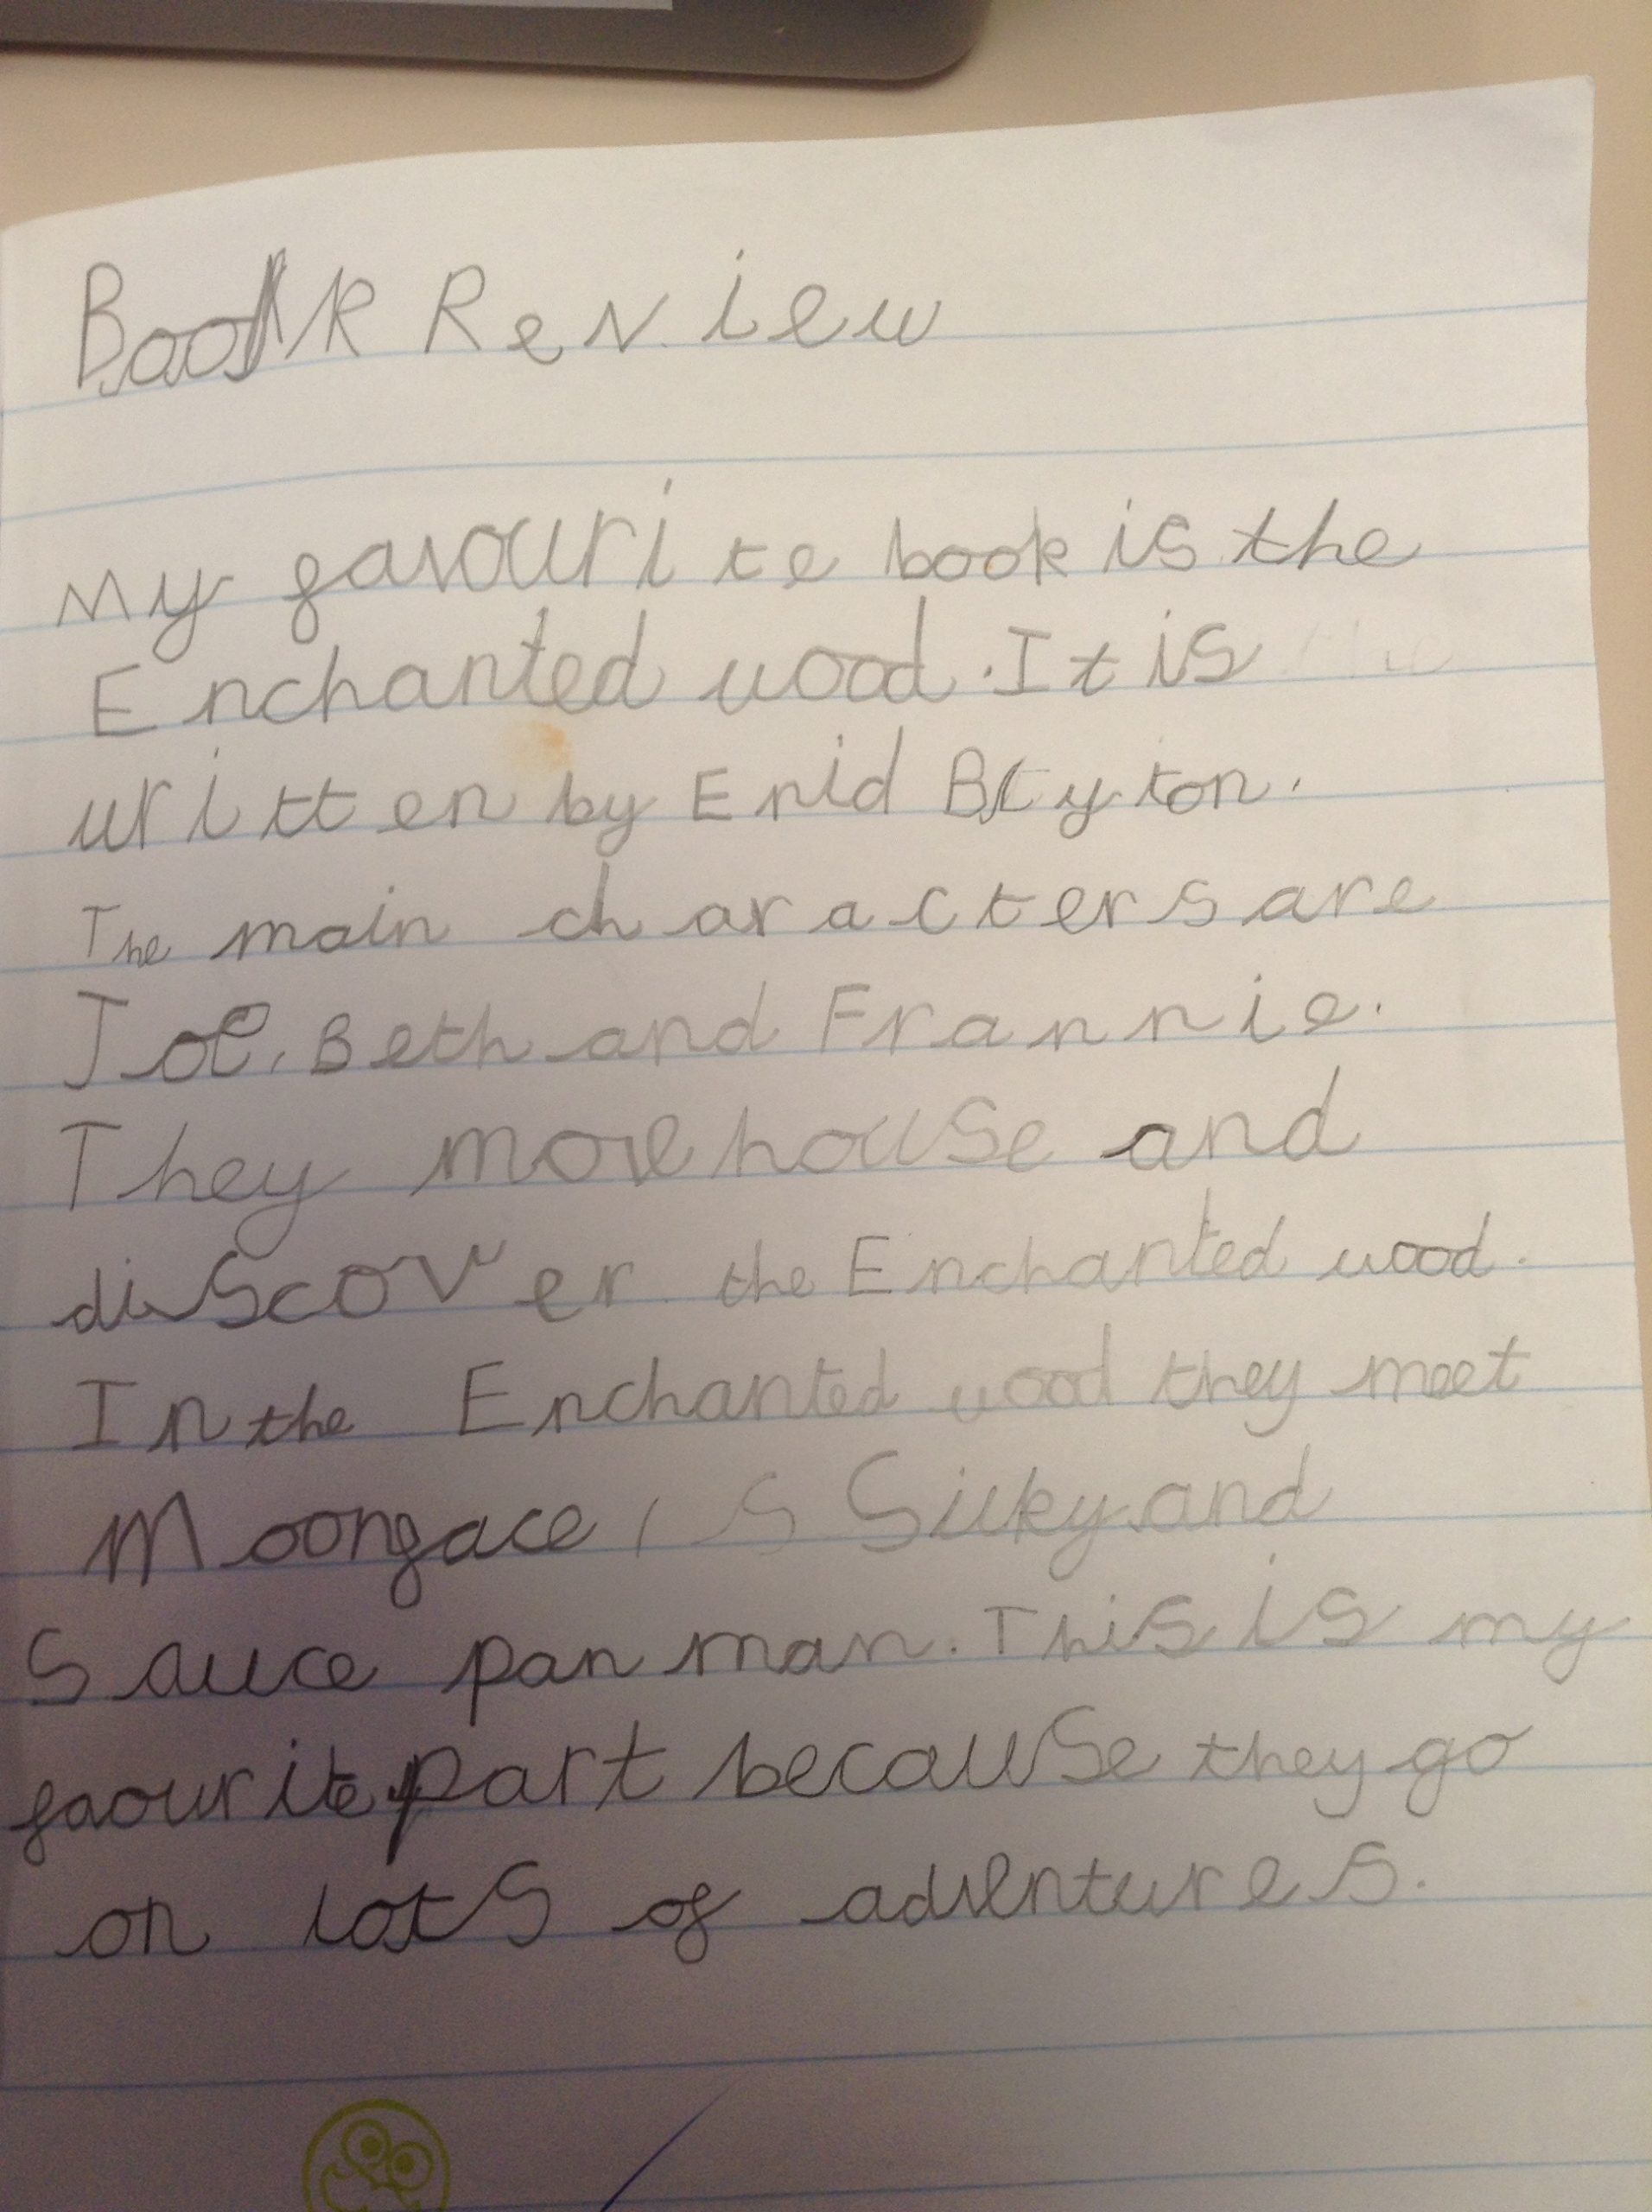 Book Review
My favourite book is the
Enchanted wood. It is
written by Enid Blyton.
The main characters are
Joe, Beth and Frannie.
They move house and
discover the Enchanted wood.
In the Enchanted wood they meet
Moonface, S Silky and
Sauce pan man. This is my
faourite part because they go
on lots of adventures.